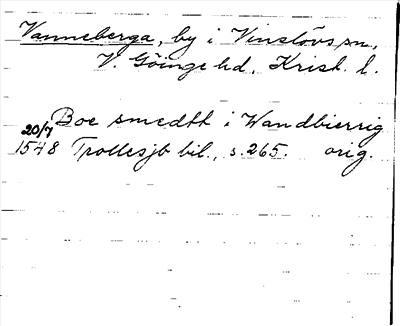 Vanneberga, by i Vinslövs sn,
V. Göinge hd, Krist. l.
Boe smedtt i Wandbierrig
20/7
1548 Trollesjb bil., s. 265. orig.